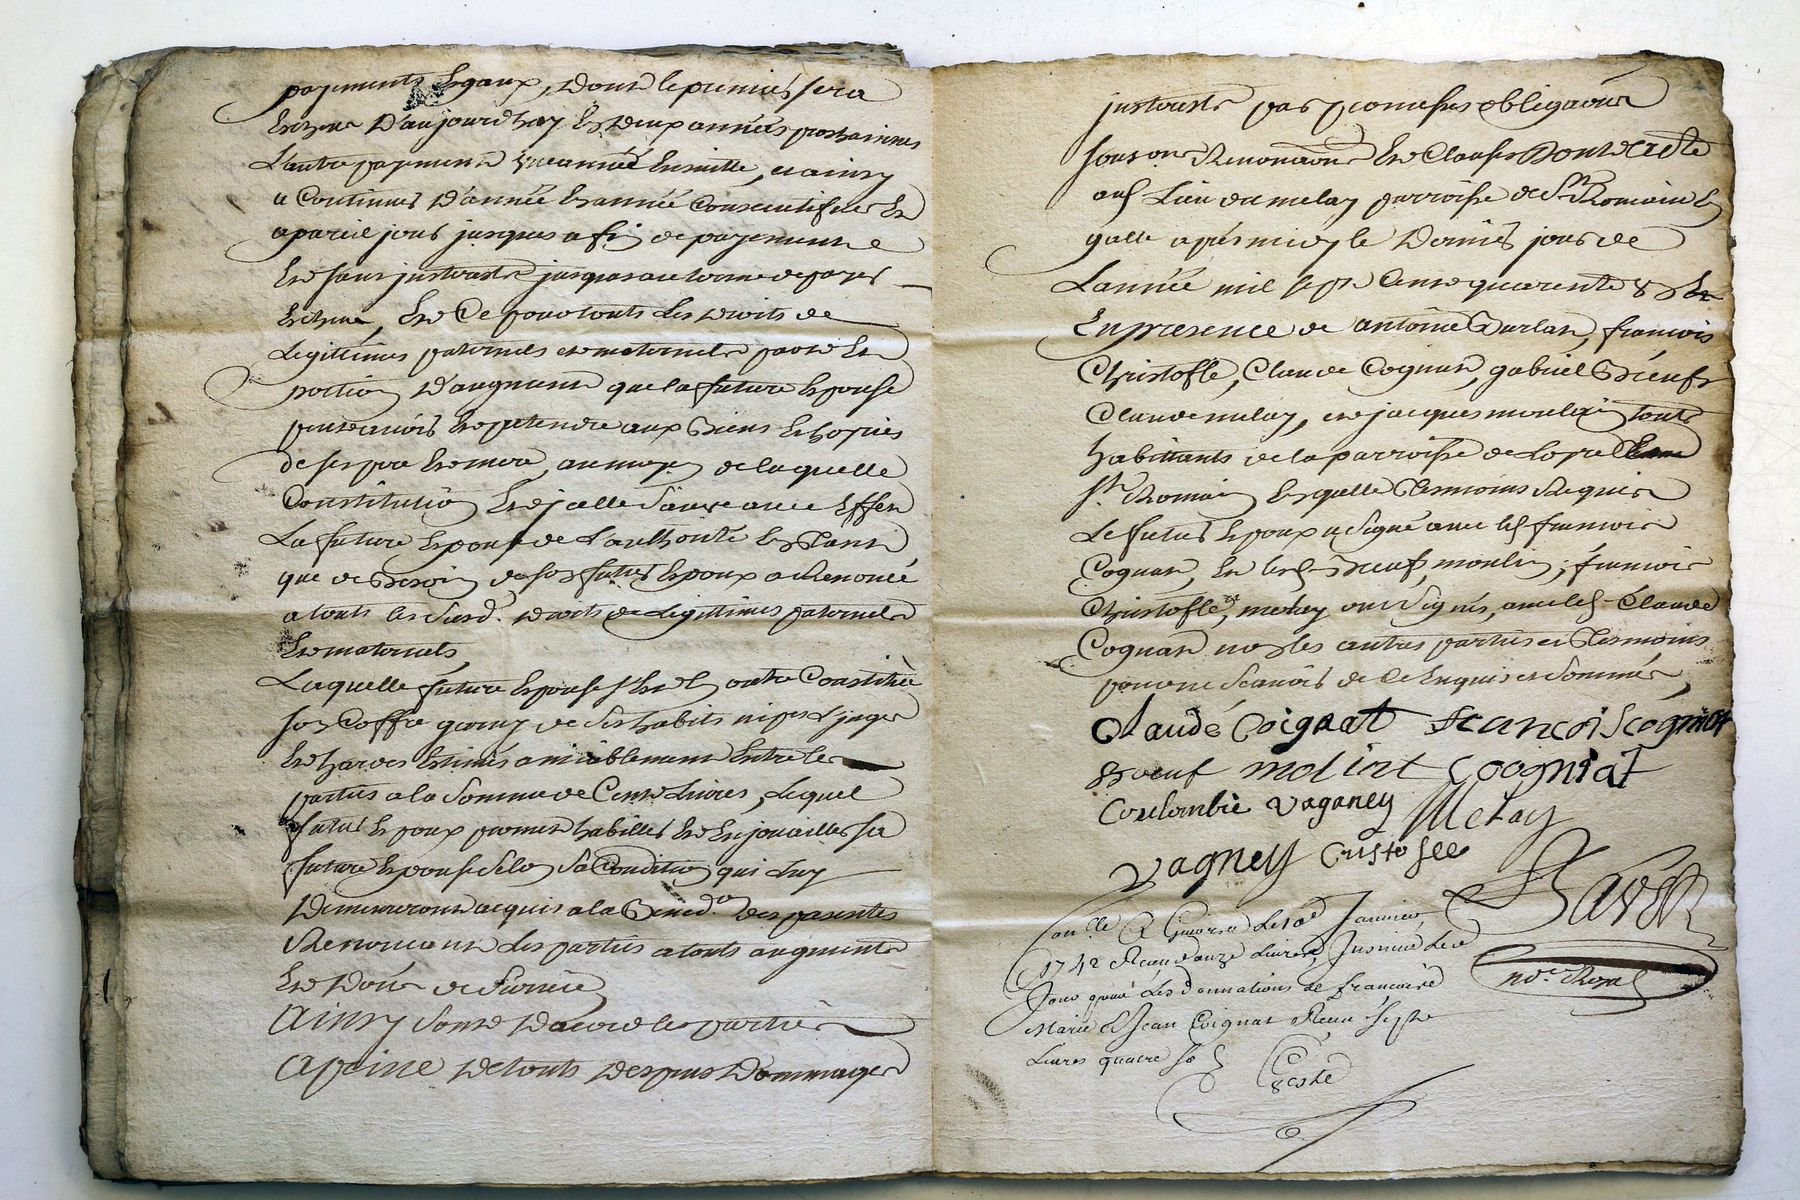 payements Egaux, Dont le premier sera
Escheu D'aujourd'huy En Deux années prochaines
L'autre payement une année Ensuitte, et ainsy
a Continuer D'année En année Consecutifves Et
a pareil jour jusques a fin de payement
Et sans jnterests jusques au terme de payer
Escheu, Et Ce pour touts Les Droits de
Legitimes paternels et maternels part Et
portion D'augment que la future Epouse
pouroit avoir Et pretendre aux Biens Et hoiries
de ses pere Et mere, au moyen de laquelle
Constitution Et jcelle Sauve avec Effet
La future Epouse de L'authorité En Tant
que de Besoin de son futur Epoux a Renoncé
a touts les Susd. Droits de Legitimes paternels
Et maternels
Laquelle future Epouse s'Est En outre Constituée
son Coffre garny de Ses habits nipes Linges
Et hardes Estimés amiablement Entre les
parties a la Somme de Cent Livres, Lequel
futur Epoux promet habiller Et Enjoualler sa
future Epouse Selon Sa Condition qui Luy
Demeureront acquis a la Bened.on Des parentes
Renonceant Les parties a touts augments
Et Don de Survie
Ainsy Sont D'acord les parties
A peine De touts Despens Dommages
jnterests par promesses obligaõns
soumõns Renonçaõns Et Clauses Dont acte
aud Lieu du melay parroisse de St Romain En
galle aprés midy le Dernier jour de
L'année mil sept Cent quarente Et Un
En presence de antoine Burlat, francois
Christofle, Claude Cognat, gabriel Bœuf
Claude melay, et jacques moulin touts
habittants de la parroisse de
St Romain En galle Temoins Requis
Le futur Epoux a Signé avec led francois
Cognat, Et lesd Bœuf, moulin, francois
Christofle, melay ont Signés, avec led Claude
Cognat non les autres parties et Temoins
pour ne Scavoir de Ce Enquis et Sommés,
Claude Coignat francois cognat
Bœuf molint Coogniat
Coulombie vaganey Melay
vagney cristofle
Bavet
nore Royal
Con.lle A Givors Le 10e Janvier
1742 Receu douze Livres, Insinué Led
Jour que Les Donnations de francoise
Marie Et Jean Coignat Receu Sept
Livres quatre sols